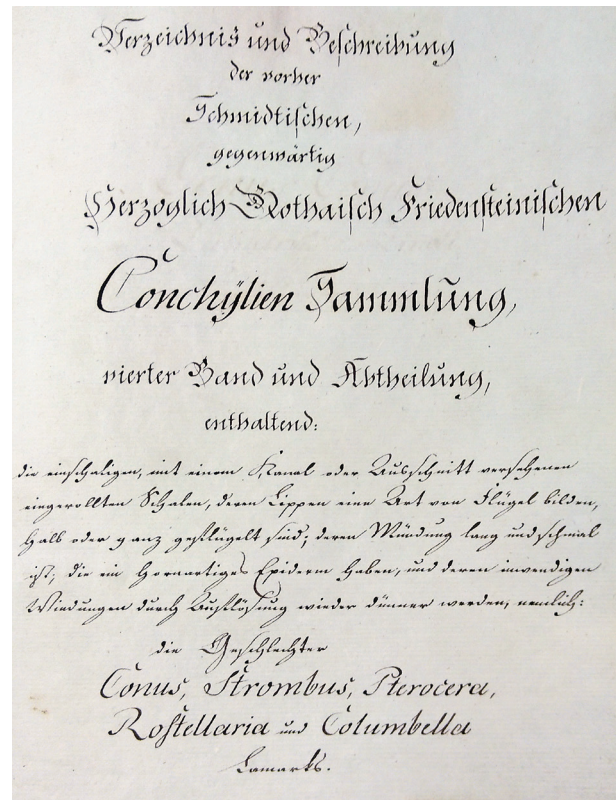 Verzeichnis und Beschreibung
der vorher
Schmidtischen,
gegenwärtig
Herzoglich Gothaisch Friedensteinischen
Conchÿlien Sammlung,
vierter Band und Abtheilung,
enthaltend:
die einschaligen, mit einem Kanal oder Ausschnitt versehenen
eingerollten Schalen, deren Lippen eine Art von Flügel bilden,
halb oder ganz geflügelt sind; deren Mündung lang und schmal
ist; die ein hornartiges Epiderm haben, und deren inwendigen
Windungen durch Auflösung wieder dünner werden; nemlich:
die Geschlechter
Conus, Strombus, Pterocera,
Rostellaria und Columbella
Lamarks.